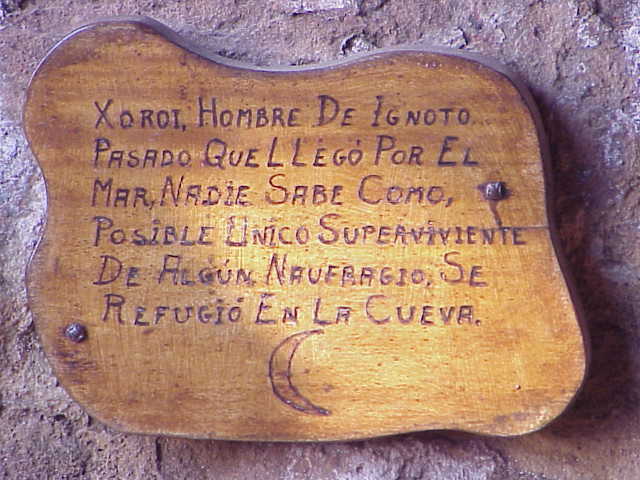 XOROI, HOMBRE DE IGNOTO
PASADO QUE LLEGÓ POR EL
MAR, NADIE SABE COMO,
POSIBLE UNICO SUPERVIVIENTE
DE ALGÚN NAUFRAGIO, SE
REFUGIÓ EN LA CUEVA.